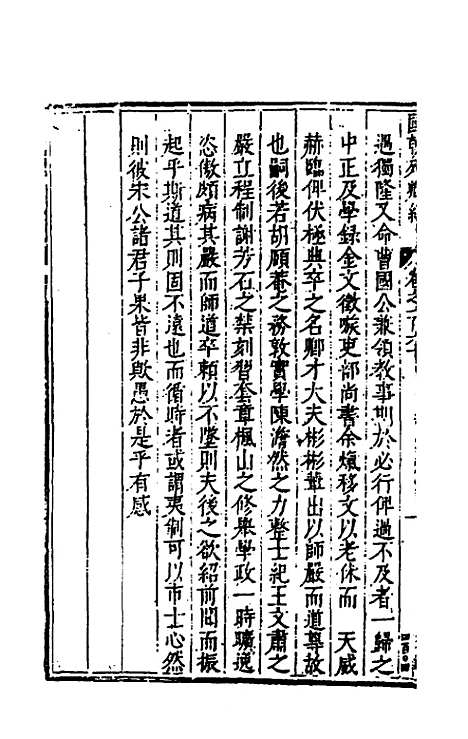 遇獨隆又命曹國公兼領教事期於必行俾過不及者一歸之
中正及學録金文徵嗾吏部尚書余熂移文以老休而　天威
赫臨俾伏極典卒之名卿才大夫彬彬輩出以師嚴而道尊故
也嗣後若胡頤菴之務敦實學陳澹然之力整士紀王文肅之
嚴立程制謝方石之禁刻習奎章楓山之修舉學政一時曠逸
恣傲頗病其嚴而師道卒賴以不墜則夫後之欲紹前聞而振
起乎斯道其則固不遠也而循時者或謂夷制可以市士心然
則彼宋公諸君子果皆非歟愚於是乎有感